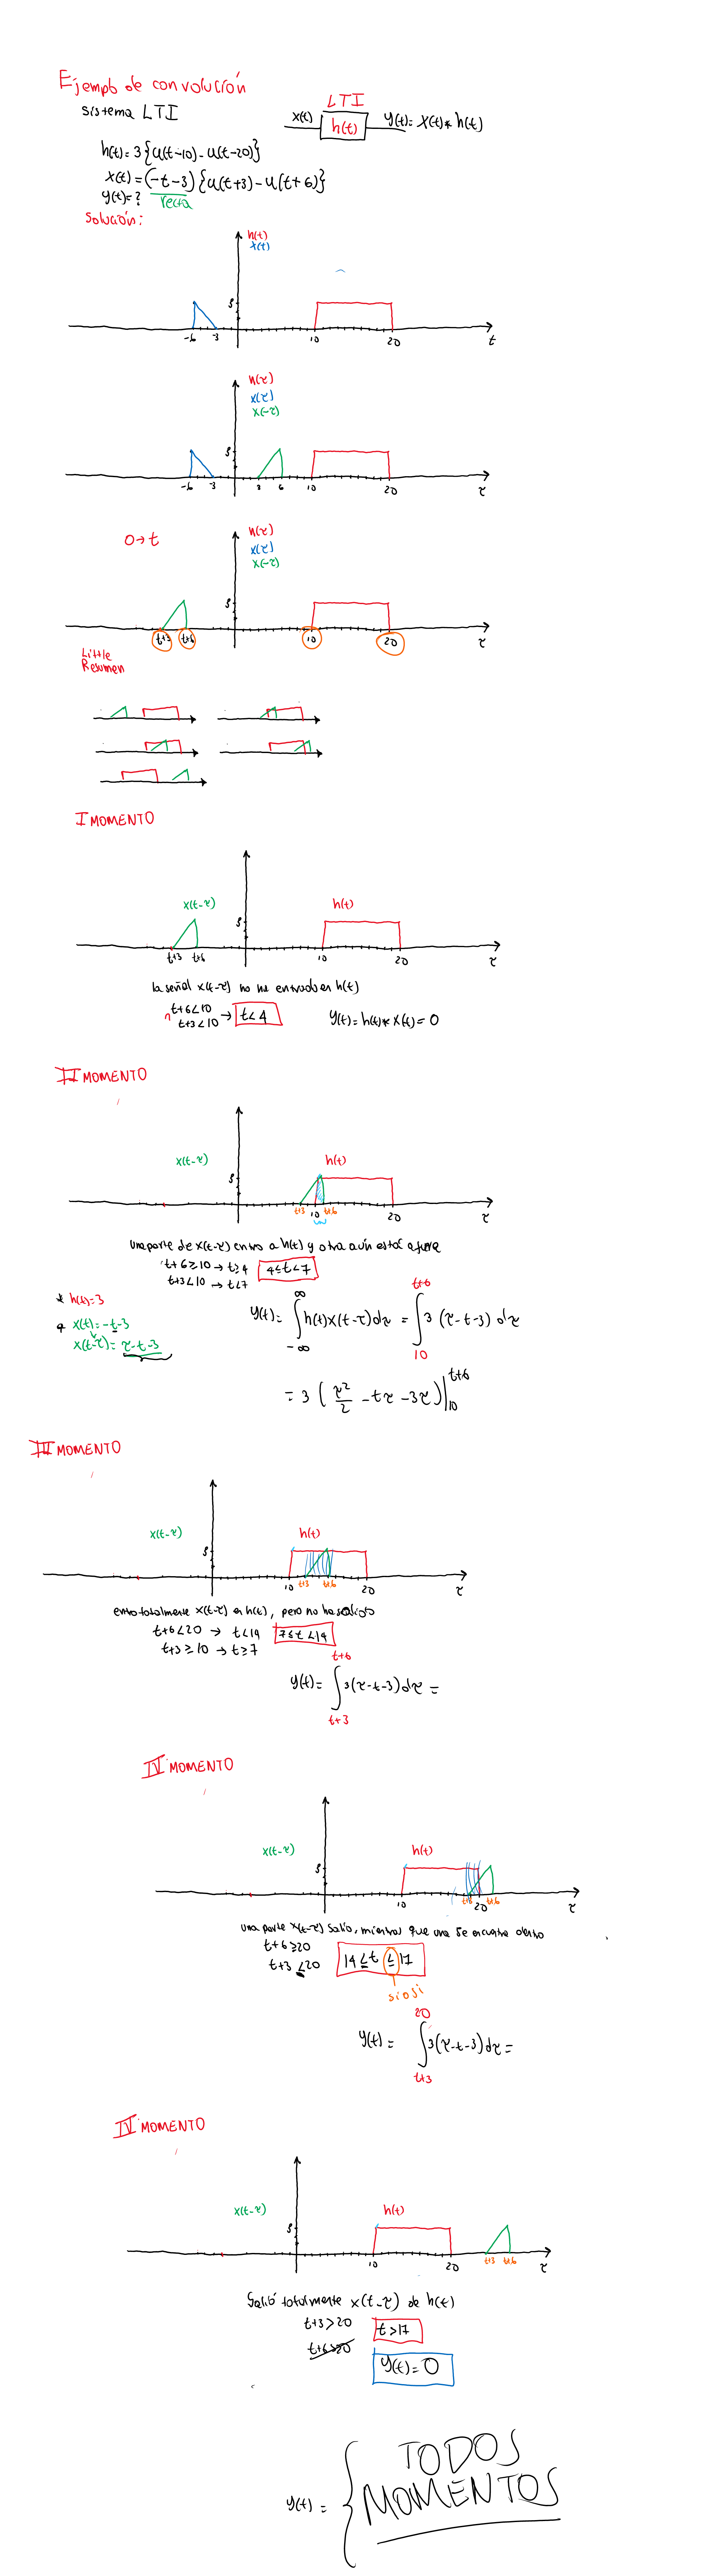 Ejemplo de convolución
Sistema LTI
LTI
x(t) h(t) y(t)= x(t)* h(t)
h(t)= 3{u(t-10)- u(t-20)}
x(t)= (-t-3) {u(t+3)- u(t+6)}
y(t)=? recta
Solución:
h(t)
x(t)
3
-6 -3 10 20 t
h(τ)
x(τ)
x(-τ)
3
-6 -3 3 6 10 20 τ
0→t
h(τ)
x(τ)
x(-τ)
3
t+3 t+6 10 20 τ
Little
Resumen
I MOMENTO
x(t-τ) h(t)
3
t+3 t+6 10 20 τ
la señal x(t-τ) no ha entrado en h(t)
t+6<10
t+3<10 → t<4 y(t)= h(t)* x(t)= 0
II MOMENTO
x(t-τ) h(t)
3
t+3 10 t+6 20 τ
una parte de x(t-τ) entro a h(t) y otra aún está afuera
t+6≥10 → t≥4 4≤t<7
t+3<10 → t<7
* h(t)=3
* x(t)= -t-3
x(t-τ)= τ-t-3
y(t)= ∫_{-∞}^{∞} h(t)x(t-τ)dτ = ∫_{10}^{t+6} 3 (τ-t-3) dτ
= 3 ( τ²/2 - tτ - 3τ )|_{10}^{t+6}
III MOMENTO
x(t-τ) h(t)
3
10 t+3 t+6 20 τ
entro totalmente x(t-τ) en h(t), pero no ha salido
t+6<20 → t<14 7≤t<14
t+3≥10 → t≥7
y(t)= ∫_{t+3}^{t+6} 3(τ-t-3)dτ =
IV MOMENTO
x(t-τ) h(t)
3
10 t+3 20 t+6 τ
una parte x(t-τ) salio, mientras que una se encuentra dentro
t+6≥20
t+3≤20 14≤t≤17
si o si
y(t)= ∫_{t+3}^{20} 3(τ-t-3)dτ =
IV MOMENTO
x(t-τ) h(t)
3
10 20 t+3 t+6 τ
Salió totalmente x(t-τ) de h(t)
t+3>20 t>17
t+6>20
y(t)= 0
y(t)= { TODOS
MOMENTOS